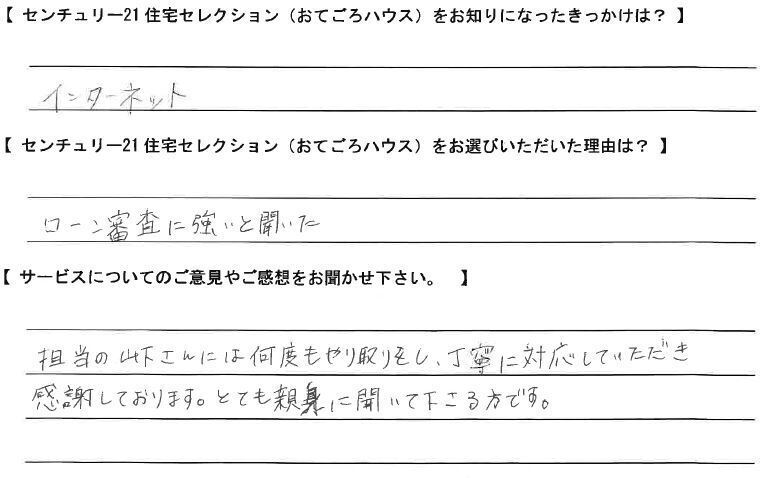 【 センチュリー21 住宅セレクション（おてごろハウス）をお知りになったきっかけは？ 】
インターネット
【 センチュリー21 住宅セレクション（おてごろハウス）をお選びいただいた理由は？ 】
ローン審査に強いと聞いた
【 サービスについてのご意見やご感想をお聞かせ下さい。 】
担当の山下さんには何度もやり取りをし、丁寧に対応していただき
感謝しております。とても親身に聞いて下さる方です。